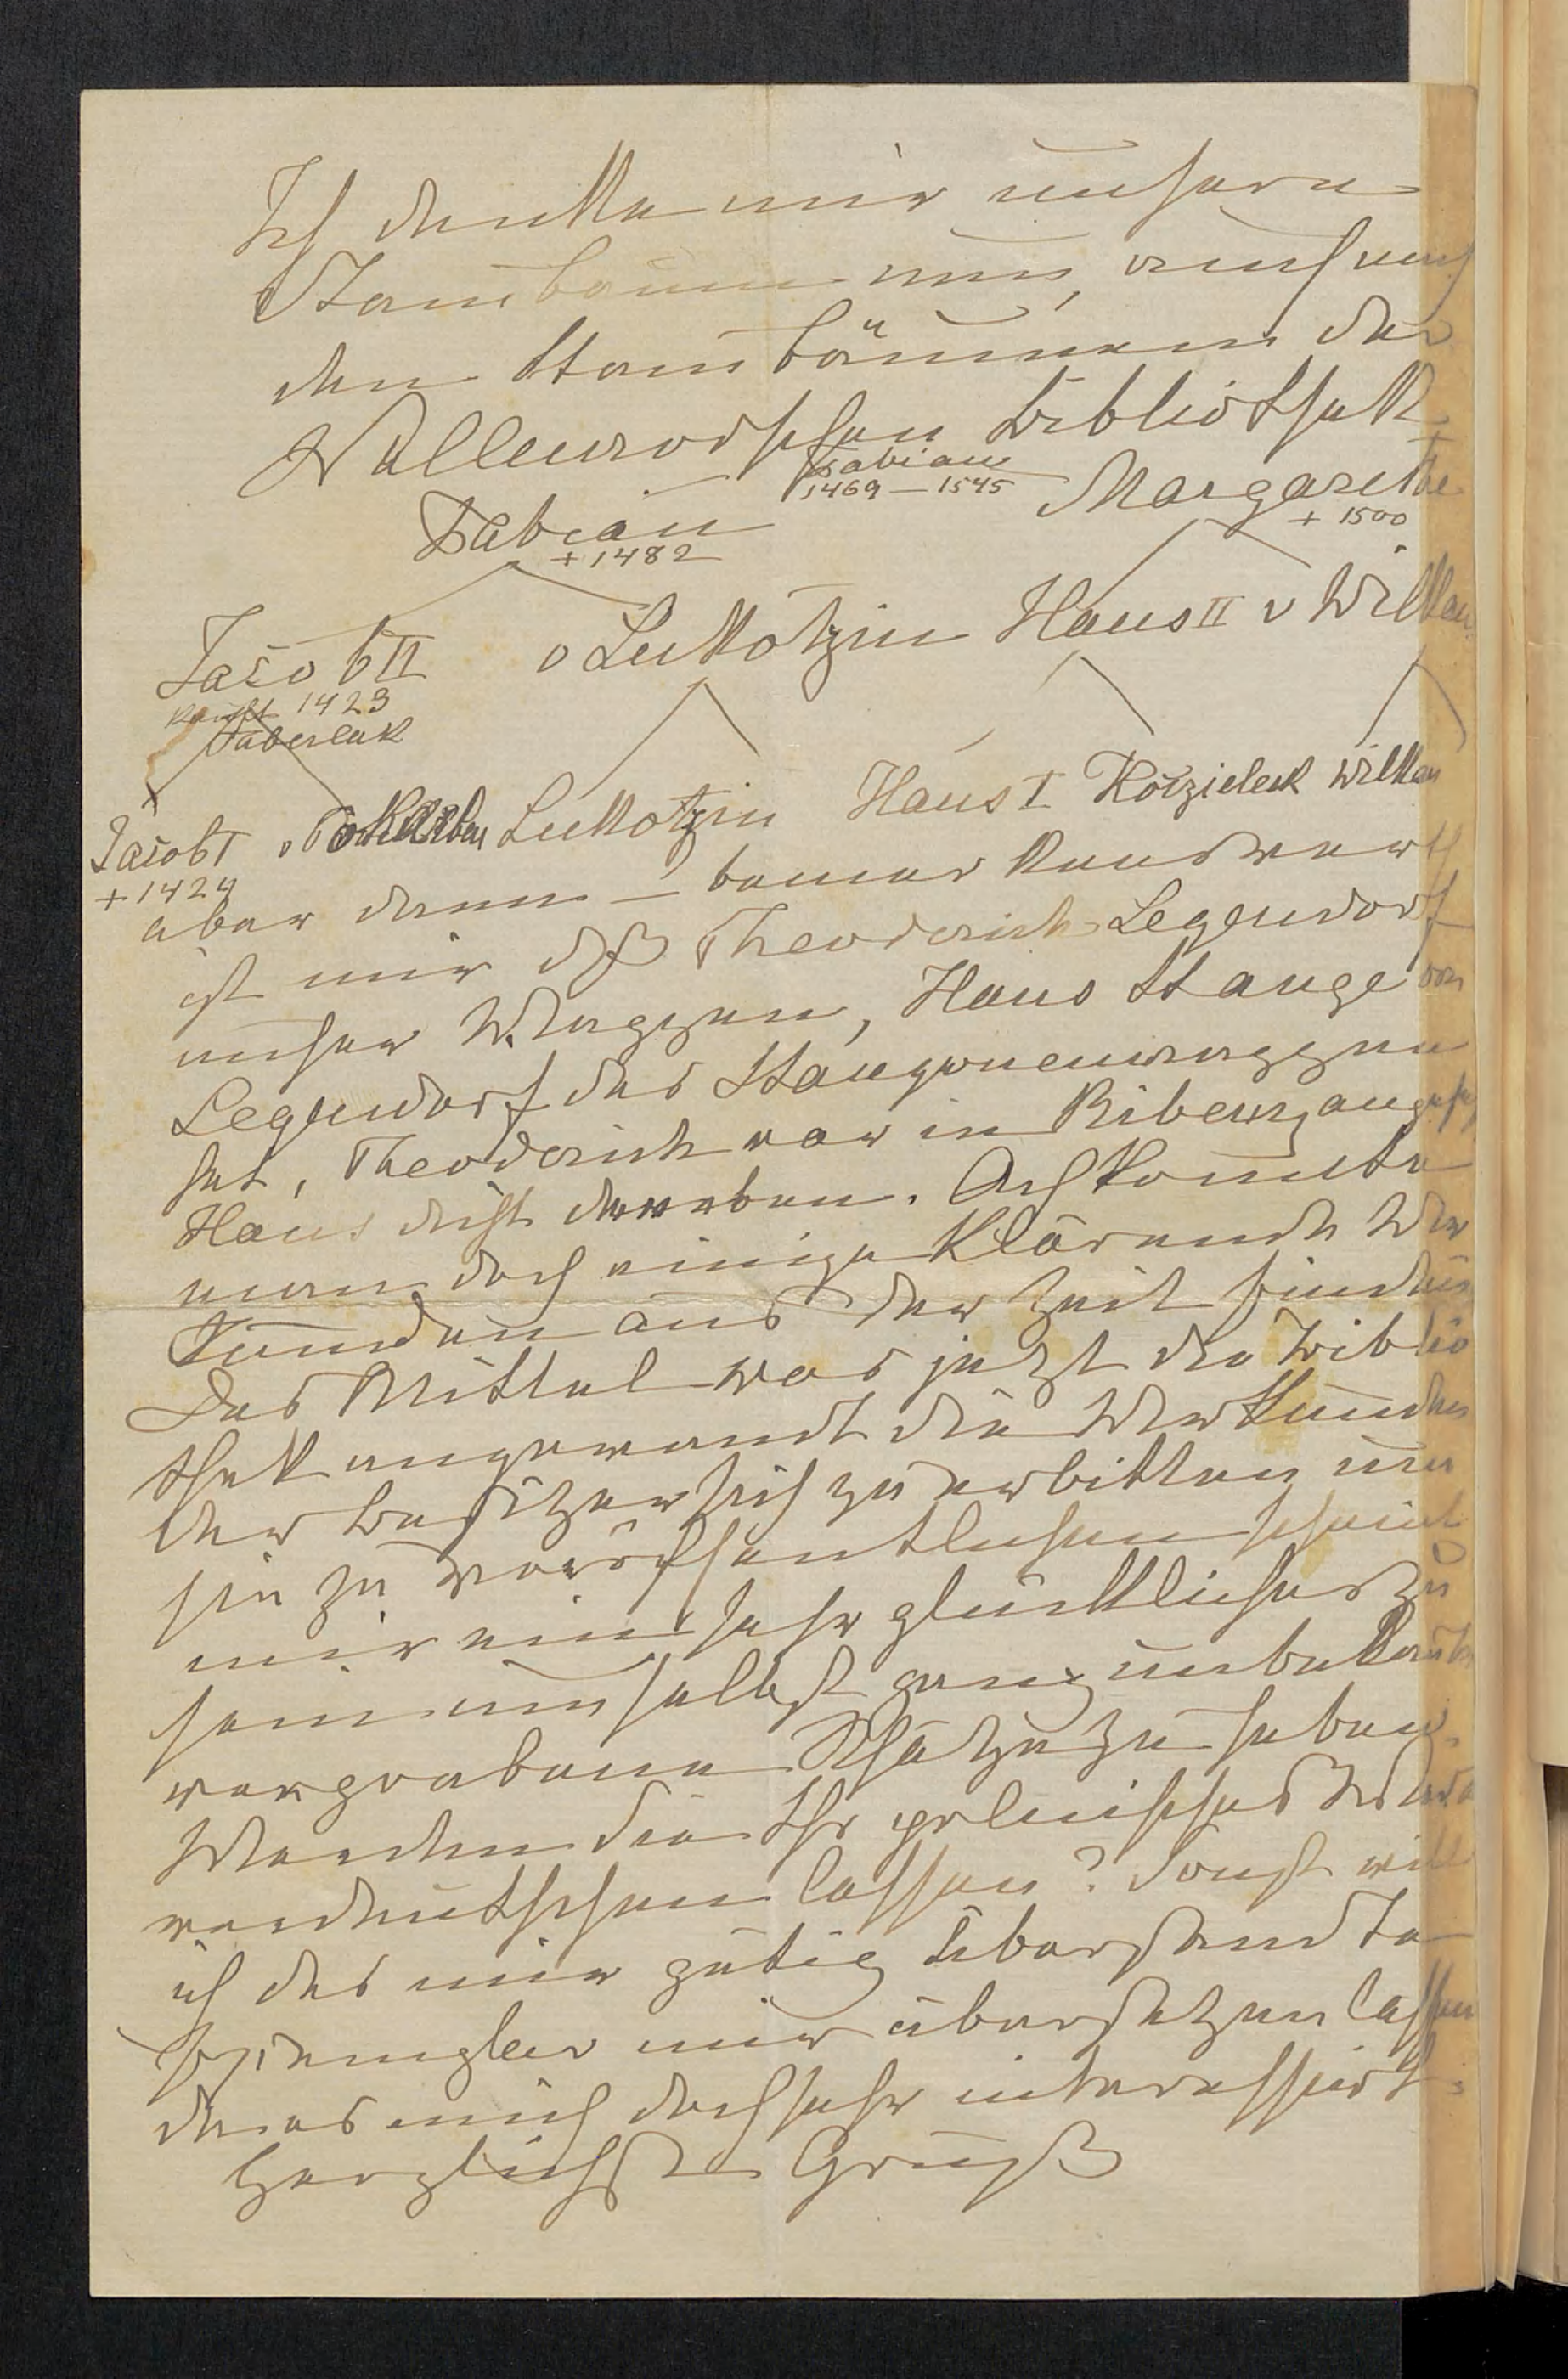 Ich denke mir unsern
Stambaum nun, auch nach
den Stambäumen der
Wallenrodschen Bibliothek
Fabian
1469 – 1545
Margarethe
+ 1500
Fabian
+ 1482
Jacob II
kauft 1423
Taberlak
v Lukotzin Hans II v Wilkau
Jacob I Lukotzin Hans I Kotzielek Wilkau
+ 1424
aber dann – bemerkenswerth
ist mir dß Theodorich Legendorf
unser Wappen, Hans Stange von
Legendorf das Stangenwappen
hat, Theodorich war in Ribenz
Hans dicht daneben. Ach könnte
man doch einige klärende Ur
kunden aus der Zeit finden
Das Mittel was jetzt die Biblio
thek angewandt die Urkunden
der Besitzer sich zu erbitten um
sie zu veröffentlichen scheint
mir ein sehr glückliches zu
sein um selbst ganz unbekannte
vergrabene Schätze zu heben.
Werden Sie Ihr polnisches
verdeutschen lassen? Sonst will
ich das mir gütig übersandte
Exemplar mir übersetzen lassen
da es mich doch sehr interessirt.
Herzlichste Grüß